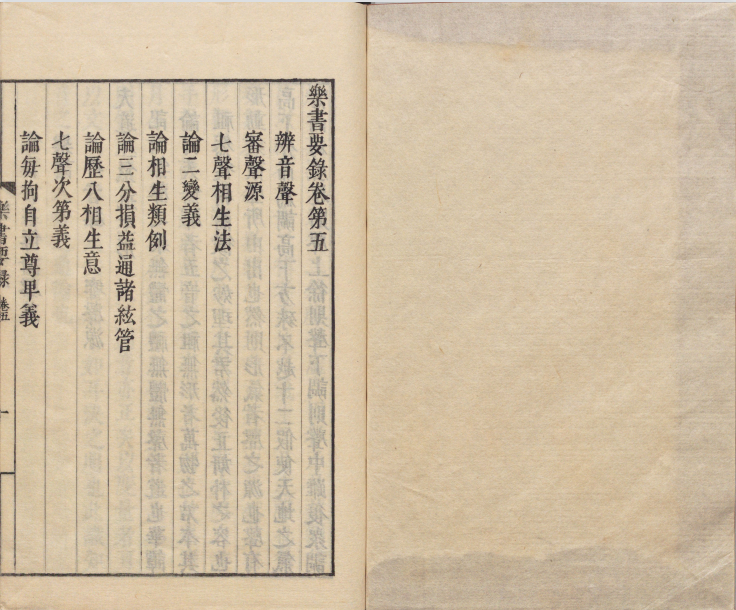 樂書要錄卷第五
辨音聲
審聲源
七聲相生法
論二變義
論相生類例
論三分損益通諸絃管
論歷八相生意
七聲次第義
論每拘自立尊卑義
樂書要錄 卷五
一